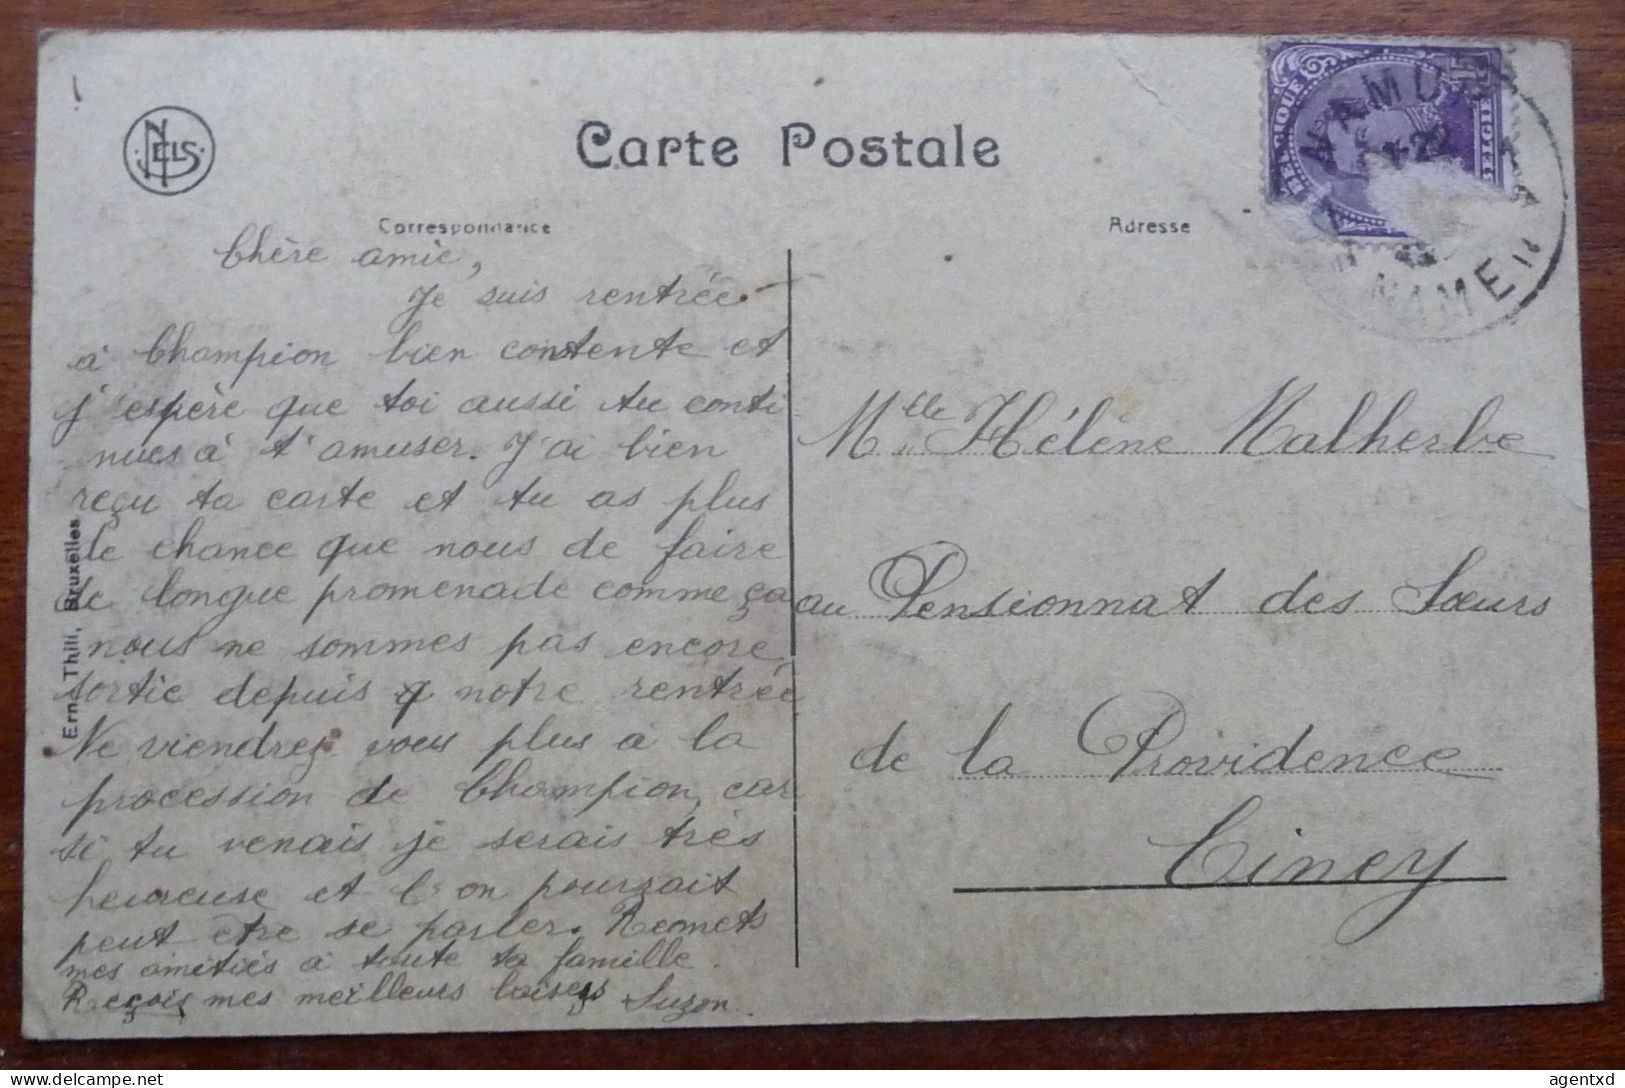 NELS
Carte Postale
BELGIQUE
15
BELGIE
NAMUR
22
NAMEN
Correspondance
Adresse
Chère amie,
Je suis rentrée
à Champion bien contente et
j'espère que toi aussi tu conti-
nues à t'amuser. J'ai bien
reçu ta carte et tu as plus
de chance que nous de faire
de longue promenade comme ça
nous ne sommes pas encore
sortie depuis q notre rentrée
Ne viendrez vous plus à la
procession de Champion, car
si tu venais je serais très
heureuse et l'on pourrait
peut être se parler. Remets
mes amitiés à toute ta famille.
Reçois mes meilleurs baisers Suzon.
Mlle Hélène Malherbe
au Pensionnat des Sœurs
de la Providence
Ciney
Ern. Thill, Bruxelles
delcampe.net
agentxd